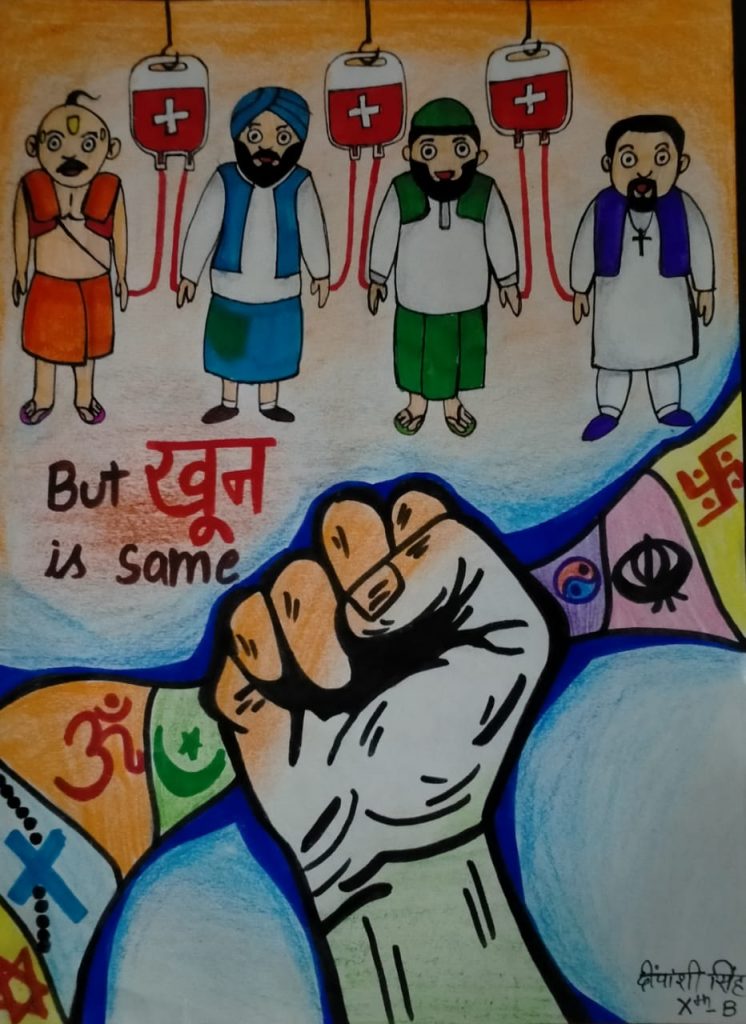 But खून
is same
ॐ
दीपांशी सिंह
Xth-B